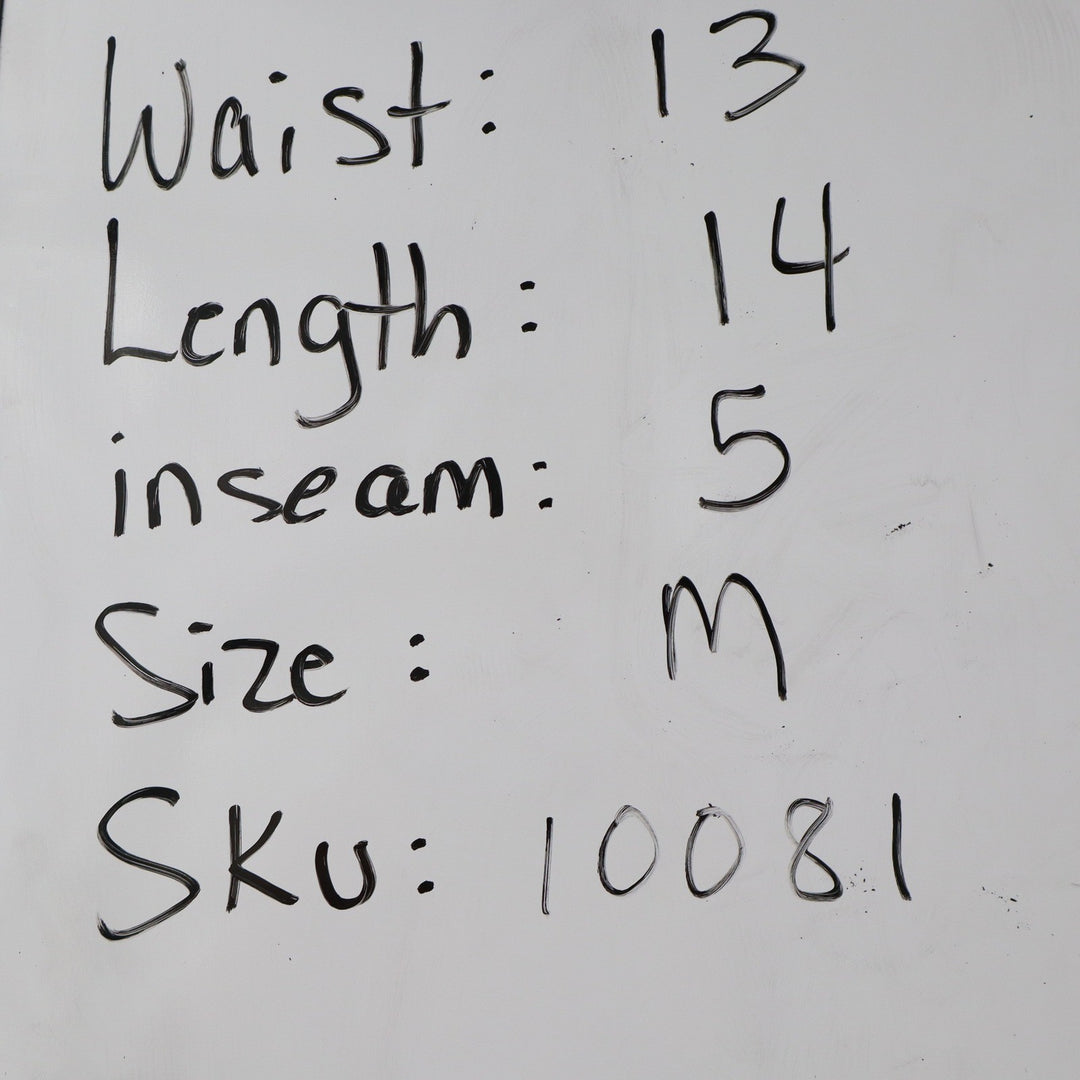 Waist: 13
Length: 14
inseam: 5
Size: M
SKU: 10081